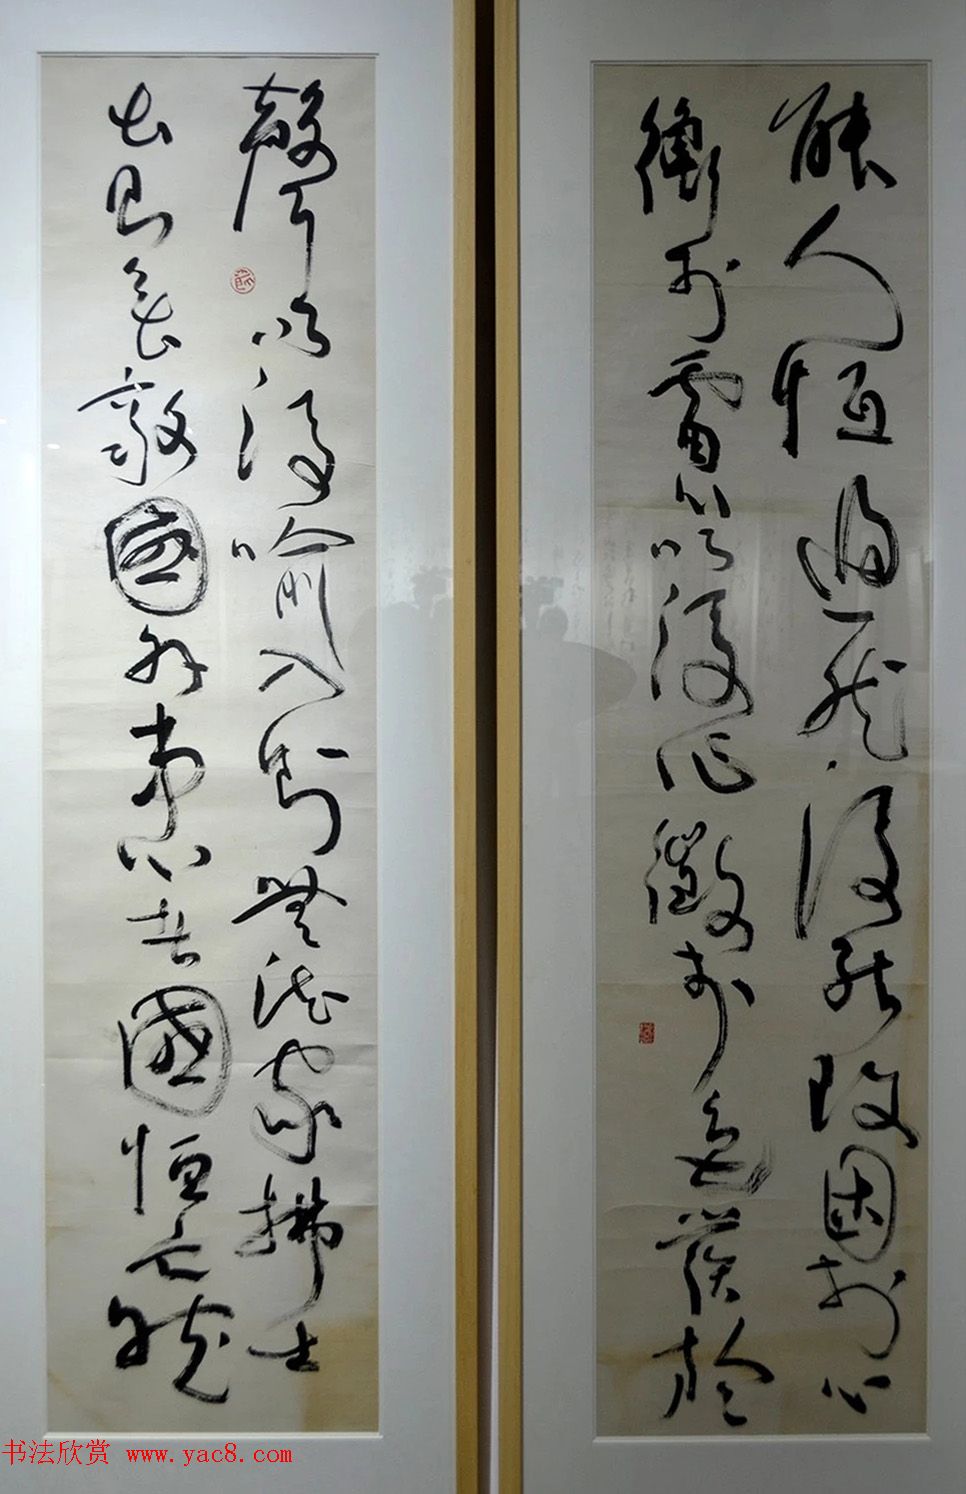 能人恒過然後能改困於心
衡於慮以後作徵於色發於
聲以後喻入則無法家拂士
出則無敵國外患者國恒亡然
书法欣赏 www.yac8.com